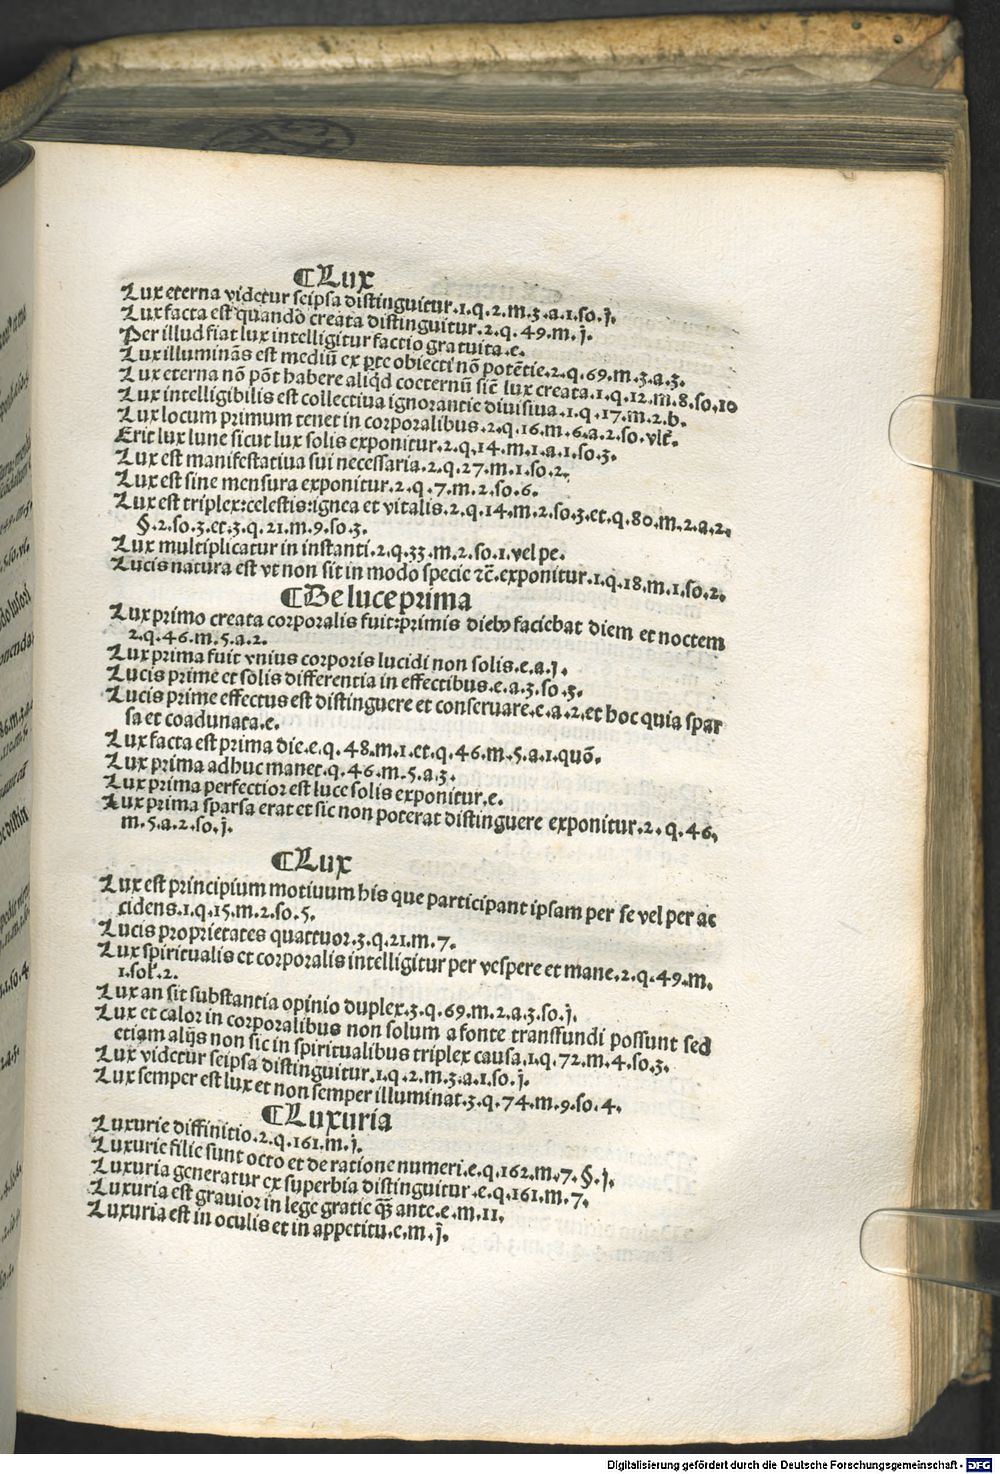 ¶Lux
Lux eterna videtur seipsa distinguitur.1.q.2.m.3.a.1.so.j.
Lux facta est quando creata distinguitur.2.q.49.m.j.
Per illud fiat lux intelligitur factio gratuita.e.
Lux illuminãs est mediũ ex ꝑte obiecti nõ potẽtie.2.q.69.m.3.a.3.
Lux eterna nõ põt habere aliqd coeternũ sic̃ lux creata.1.q.12.m.8.so.10
Lux intelligibilis est collectiua ignorantie diuisiua.1.q.17.m.2.b.
Lux locum primum tenet in corporalibus.2.q.16.m.6.a.2.so.vlt̃.
Erit lux lune sicut lux solis exponitur.2.q.14.m.1.a.1.so.3.
Lux est manifestatiua sui necessaria.2.q.27.m.1.so.2.
Lux est sine mensura exponitur.2.q.7.m.2.so.6.
Lux est triplex:celestis:ignea et vitalis.2.q.14.m.2.so.3.et.q.80.m.2.a.2.
§.2.so.3.et.3.q.21.m.9.so.3.
Lux multiplicatur in instanti.2.q.33.m.2.so.1.vel pe.
Lucis natura est vt non sit in modo specie ⁊c̃.exponitur.1.q.18.m.1.so.2.
¶De luce prima
Lux primo creata corporalis fuit:primis dieb⁹ faciebat diem et noctem
2.q.46.m.5.a.2.
Lux prima fuit vnius corporis lucidi non solis.e.a.j.
Lucis prime et solis differentia in effectibus.e.a.3.so.3.
Lucis prime effectus est distinguere et conseruare.e.a.2.et hoc quia spar
sa et coadunata.e.
Lux facta est prima die.e.q.48.m.1.et.q.46.m.5.a.1.quõ.
Lux prima adhuc manet.q.46.m.5.a.3.
Lux prima perfectior est luce solis exponitur.e.
Lux prima sparsa erat et sic non poterat distinguere exponitur.2.q.46.
m.5.a.2.so.j.
¶Lux
Lux est principium motiuum his que participant ipsam per se vel per ac
cidens.1.q.15.m.2.so.5.
Lucis proprietates quattuor.3.q.21.m.7.
Lux spiritualis et corporalis intelligitur per vespere et mane.2.q.49.m.
1.sol̃.2.
Lux an sit substantia opinio duplex.3.q.69.m.2.a.3.so.j.
Lux et calor in corporalibus non solum a fonte transfundi possunt sed
etiam alijs non sic in spiritualibus triplex causa.1.q.72.m.4.so.3.
Lux videtur seipsa distinguitur.1.q.2.m.3.a.1.so.j.
Lux semper est lux et non semper illuminat.3.q.74.m.9.so.4.
¶Luxuria
Luxurie diffinitio.2.q.161.m.j.
Luxurie filie sunt octo et de ratione numeri.e.q.162.m.7.§.j.
Luxuria generatur ex superbia distinguitur.e.q.161.m.7.
Luxuria est grauior in lege gratie q̃ȝ ante.e.m.11.
Luxuria est in oculis et in appetitu.e.m.j.
Digitalisierung gefördert durch die Deutsche Forschungsgemeinschaft - DFG